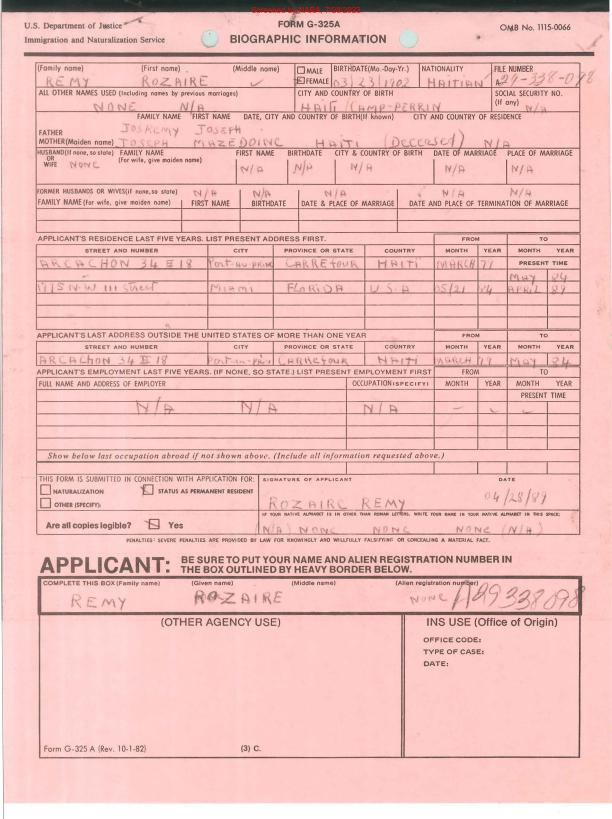 U.S. Department of Justice
Immigration and Naturalization Service
FORM G-325A
BIOGRAPHIC INFORMATION
OMB No. 1115-0066
(Family name) (First name) (Middle name)
REMY ROZAIRE
MALE
FEMALE
BIRTHDATE(Mo.-Day-Yr.)
03/23/1902
NATIONALITY
HAITIAN
FILE NUMBER
A29-338-098
ALL OTHER NAMES USED (Including names by previous marriages)
NONE N/A
CITY AND COUNTRY OF BIRTH
HAITI/CAMP-PERRIN
SOCIAL SECURITY NO.
(If any) N/A
FAMILY NAME FIRST NAME DATE, CITY AND COUNTRY OF BIRTH(If known) CITY AND COUNTRY OF RESIDENCE
FATHER JOSREMY JOSEPH
MOTHER(Maiden name) JOSEPH MAZEDOINE HAITI (Deceased) N/A
HUSBAND(If none, so state) OR WIFE
FAMILY NAME (For wife, give maiden name)
FIRST NAME BIRTHDATE CITY & COUNTRY OF BIRTH DATE OF MARRIAGE PLACE OF MARRIAGE
NONE N/A N/A N/A N/A N/A
FORMER HUSBANDS OR WIVES(if none, so state) N/A N/A N/A N/A N/A
FAMILY NAME (For wife, give maiden name) FIRST NAME BIRTHDATE DATE & PLACE OF MARRIAGE DATE AND PLACE OF TERMINATION OF MARRIAGE
APPLICANT'S RESIDENCE LAST FIVE YEARS. LIST PRESENT ADDRESS FIRST. FROM TO
STREET AND NUMBER CITY PROVINCE OR STATE COUNTRY MONTH YEAR MONTH YEAR
ARCACHON 34 # 18 Port-au-prince CARREfour HAITI MARCH 79 PRESENT TIME
MAY 84
N.W 111 street MIAMI FLORIDA U.S.A 05/21 84 APRIL 89
APPLICANT'S LAST ADDRESS OUTSIDE THE UNITED STATES OF MORE THAN ONE YEAR FROM TO
STREET AND NUMBER CITY PROVINCE OR STATE COUNTRY MONTH YEAR MONTH YEAR
ARCACHON 34 # 18 CARREfour HAITI MARCH 79 MAY 84
APPLICANT'S EMPLOYMENT LAST FIVE YEARS. (IF NONE, SO STATE.) LIST PRESENT EMPLOYMENT FIRST FROM TO
FULL NAME AND ADDRESS OF EMPLOYER OCCUPATION(SPECIFY) MONTH YEAR MONTH YEAR
PRESENT TIME
N/A N/A N/A
Show below last occupation abroad if not shown above. (Include all information requested above.)
THIS FORM IS SUBMITTED IN CONNECTION WITH APPLICATION FOR:
NATURALIZATION STATUS AS PERMANENT RESIDENT
OTHER (SPECIFY):
SIGNATURE OF APPLICANT DATE
ROZAIRE REMY 04/28/89
Are all copies legible? Yes
IF YOUR NATIVE ALPHABET IS IN OTHER THAN ROMAN LETTERS, WRITE YOUR NAME IN YOUR NATIVE ALPHABET IN THIS SPACE:
(N/A) NONE NONE NONE (N/A)
PENALTIES: SEVERE PENALTIES ARE PROVIDED BY LAW FOR KNOWINGLY AND WILLFULLY FALSIFYING OR CONCEALING A MATERIAL FACT.
APPLICANT: BE SURE TO PUT YOUR NAME AND ALIEN REGISTRATION NUMBER IN
THE BOX OUTLINED BY HEAVY BORDER BELOW.
COMPLETE THIS BOX (Family name) (Given name) (Middle name) (Alien registration number)
REMY ROZAIRE NONE A29338098
(OTHER AGENCY USE)
INS USE (Office of Origin)
OFFICE CODE:
TYPE OF CASE:
DATE:
Form G-325 A (Rev. 10-1-82) (3) C.